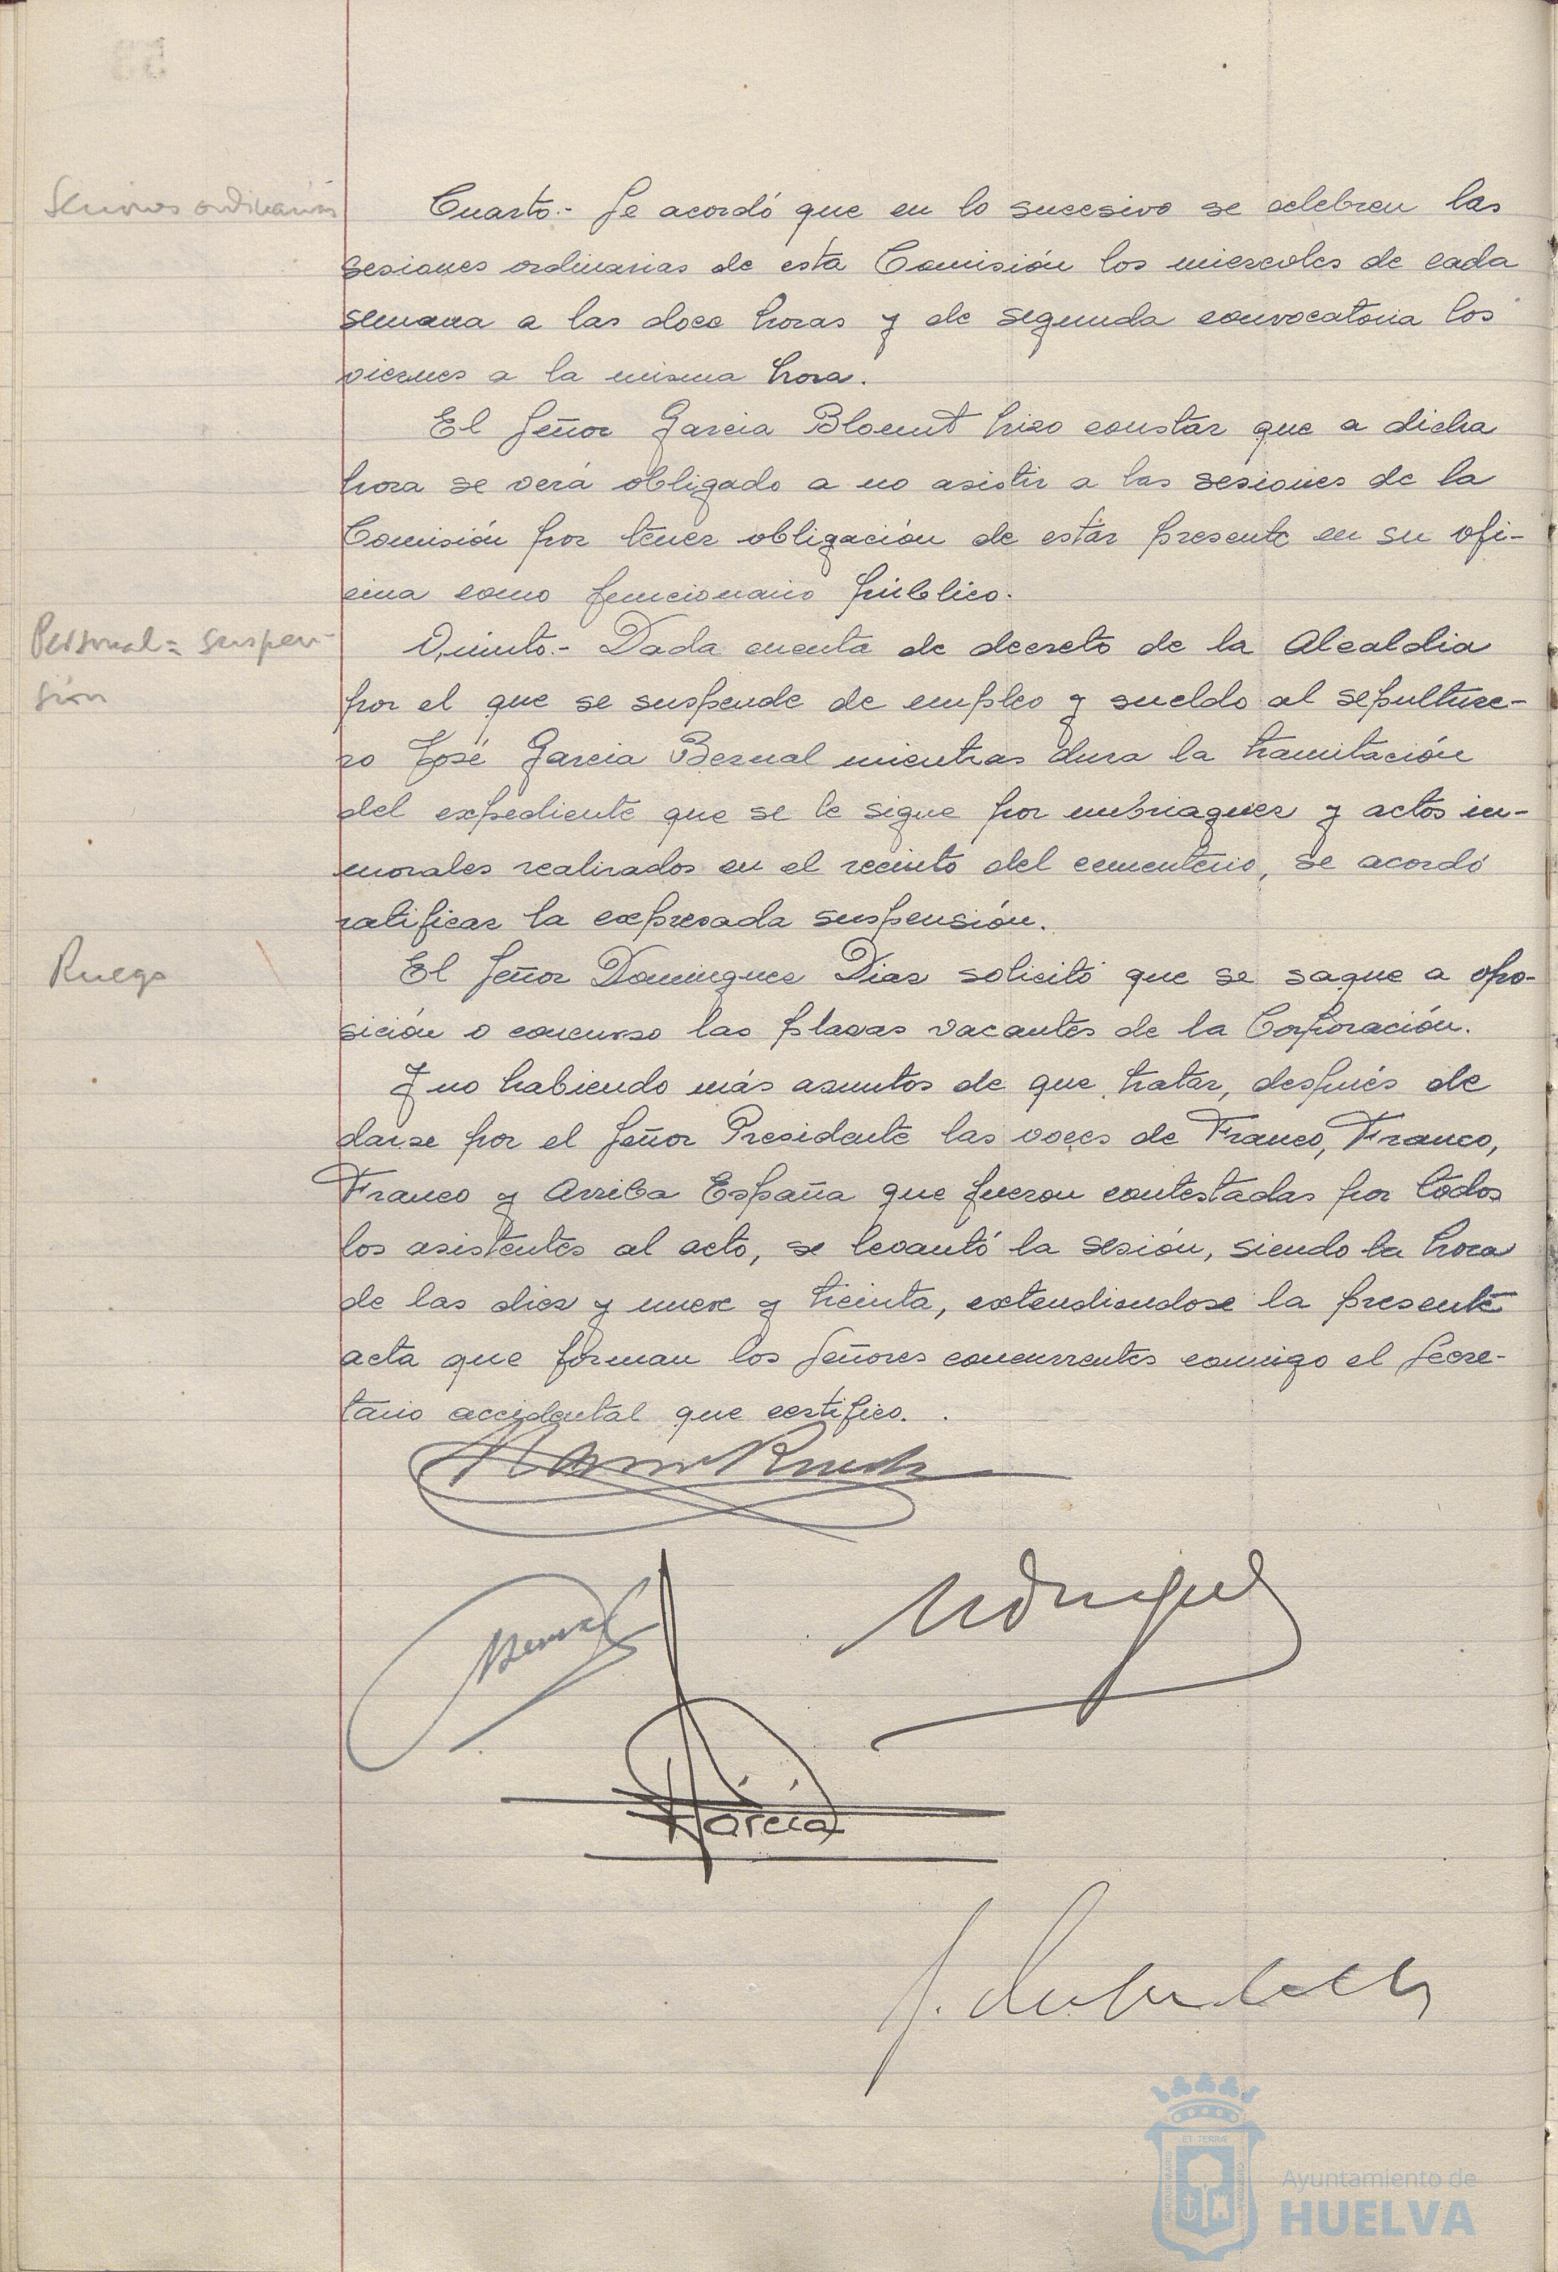 Sesiones ordinarias
Cuarto.- Se acordó que en lo sucesivo se celebren las
sesiones ordinarias de esta Comisión los miercoles de cada
semana a las doce horas y de segunda convocatoria los
viernes a la misma hora.
El Señor Garcia Blount hizo constar que a dicha
hora se verá obligado a no asistir a las sesiones de la
Comisión por tener obligación de estar presente en su ofi-
cina como funcionario público.
Personal = suspen-
sión
Quinto.- Dada cuenta de decreto de la Alcaldia
por el que se suspende de empleo y sueldo al sepulture-
ro José Garcia Bernal mientras dura la tramitación
del expediente que se le sigue por embriaguez y actos in-
morales realizados en el recinto del cementerio, se acordó
ratificar la expresada suspensión.
Ruego
El Señor Dominguez Diaz solicitó que se saque a opo-
sición o concurso las plazas vacantes de la Corporación.
Y no habiendo más asuntos de que tratar, después de
darse por el Señor Presidente las voces de Franco, Franco,
Franco y Arriba España que fueron contestadas por todos
los asistentes al acto, se levantó la sesión, siendo la hora
de las diez y nueve y treinta, extendiendose la presente
acta que firman los Señores concurrentes conmigo el Secre-
tario accidental que certifico.
Garcia
ET TERRAE
Ayuntamiento de
HUELVA